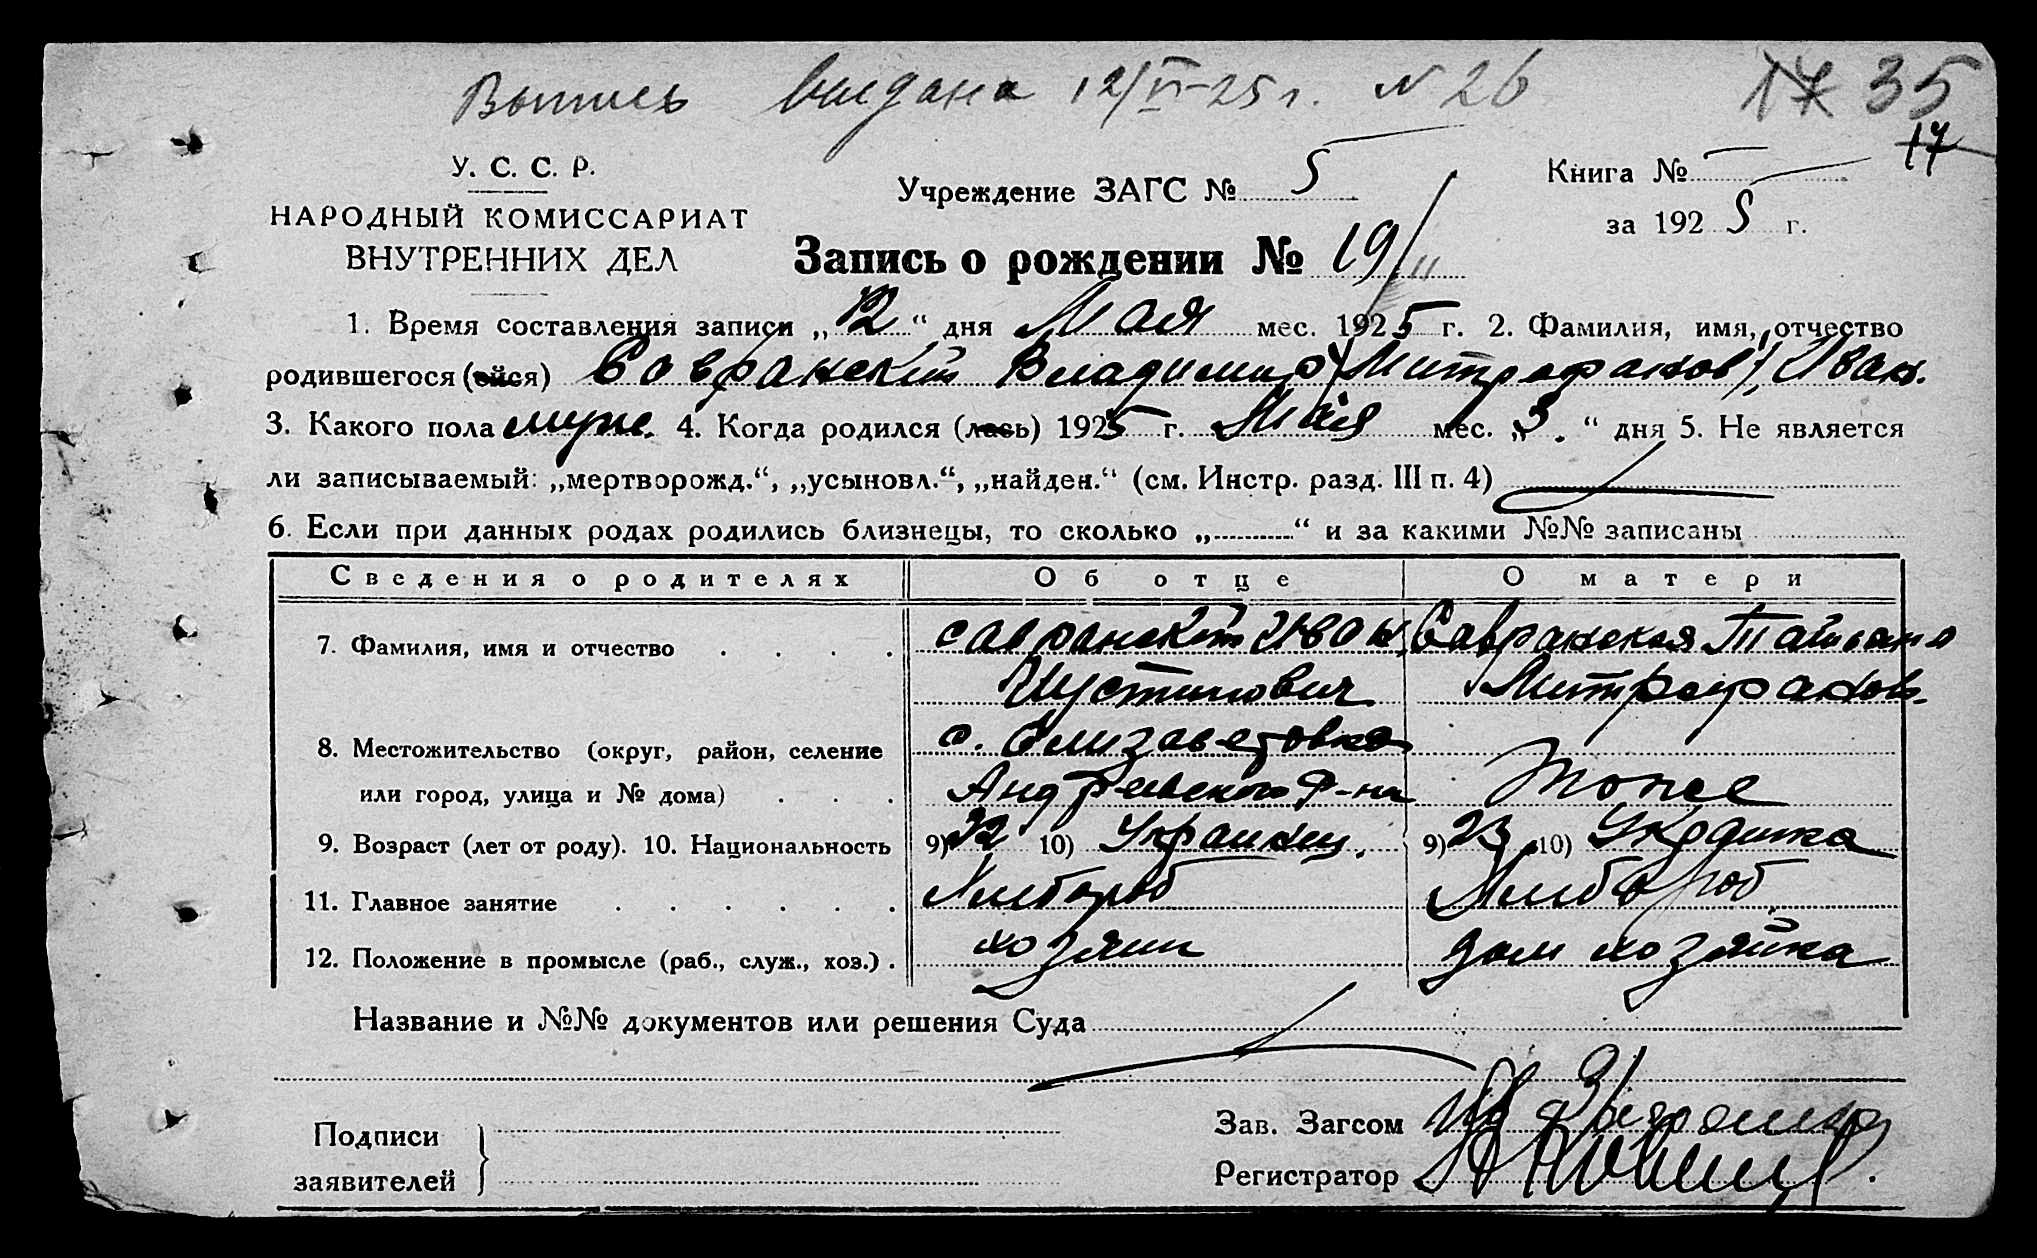 Выпись выдана 12/VI-25 г. № 26
17 35
17
У. С. С. Р.
НАРОДНЫЙ КОМИССАРИАТ
ВНУТРЕННИХ ДЕЛ
Учреждение ЗАГС № 5
Книга №
за 1925 г.
Запись о рождении № 19
1. Время составления записи „12“ дня Мая мес. 1925 г. 2. Фамилия, имя, отчество
родившегося (ейся) Савранский Владимир (Митрофанов) Иван.
3. Какого пола муж. 4. Когда родился (лась) 1925 г. Мая мес. „3.“ дня 5. Не является
ли записываемый: „мертворожд.“, „усыновл.“, „найден.“ (см. Инстр. разд. III п. 4)
6. Если при данных родах родились близнецы, то сколько „..........“ и за какими №№ записаны
Сведения о родителях Об отце О матери
7. Фамилия, имя и отчество . . . . Савранский Иван Савранская Татьяна
Иустинович Митрофанов.
8. Местожительство (округ, район, селение с. Елизаветовка
или город, улица и № дома) . . . Андреевского р-на тоже
9. Возраст (лет от роду). 10. Национальность 9) 32 10) Украинец. 9) 23 10) Украинка
11. Главное занятие . . . . . . Хлебороб Хлебороб
12. Положение в промысле (раб., служ., хоз.) . хозяин дом хозяйка
Название и №№ документов или решения Суда
Подписи
заявителей
Зав. Загсом
Регистратор